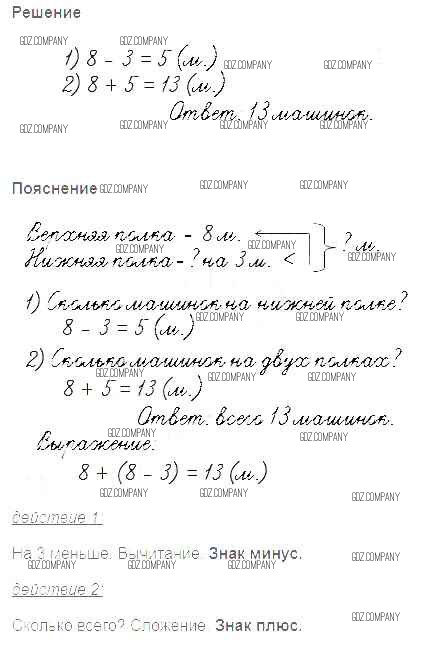 Решение
GDZ.COMPANY GDZ.COMPANY
1) 8 - 3 = 5 (м.) GDZ.COMPANY GDZ.COMPANY
2) 8 + 5 = 13 (м.)
Ответ. 13 машинок.
GDZ.COMPANY GDZ.COMPANY GDZ.COMPANY GDZ.COMPANY
Пояснение GDZ.COMPANY GDZ.COMPANY GDZ.COMPANY
Верхняя полка - 8 м.
Нижняя полка - ? на 3 м. < ? м.
GDZ.COMPANY GDZ.COMPANY
1) Сколько машинок на нижней полке?
8 - 3 = 5 (м.) GDZ.COMPANY GDZ.COMPANY
2) Сколько машинок на двух полках?
GDZ.COMPANY GDZ.COMPANY GDZ.COMPANY
8 + 5 = 13 (м.)
Ответ. всего 13 машинок.
GDZ.COMPANY GDZ.COMPANY
Выражение:
8 + (8 - 3) = 13 (м.)
GDZ.COMPANY GDZ.COMPANY GDZ.COMPANY
действие 1:
На 3 меньше. Вычитание. Знак минус.
GDZ.COMPANY GDZ.COMPANY GDZ.COMPANY GDZ.COMPANY
действие 2:
Сколько всего? Сложение. Знак плюс.
GDZ.COMPANY